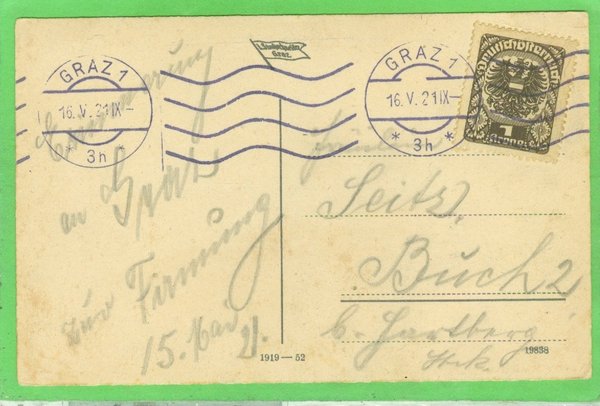 GRAZ 1
16. V. 21 IX-
* 3h *
GRAZ 1
16. V. 21 IX-
* 3h *
Deutschösterreich
1
Graz.
Erinnerung
an Graz
zur Firmung
15. Mai
21.
Fräulein
Seitz,
Buch 2
b. Hartberg
1919 — 52
19838